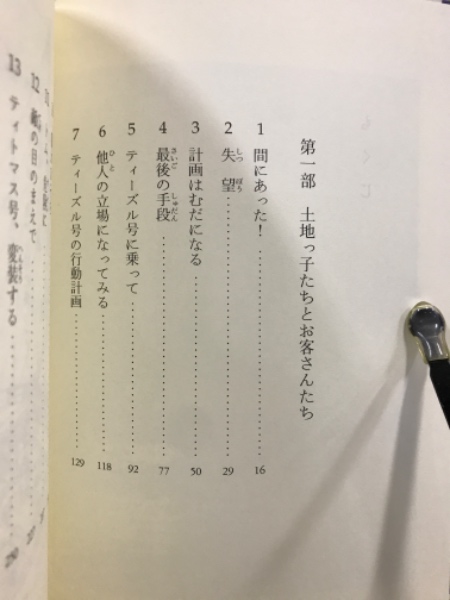 もくじ
第一部 土地っ子たちとお客さんたち
1 間にあった!……16
2 失望……29
3 計画はむだになる……50
4 最後の手段……77
5 ティーズル号に乗って……92
6 他人の立場になってみる……118
7 ティーズル号の行動計画……129
12 敵の目のまえで
13 ティトマス号、変装する